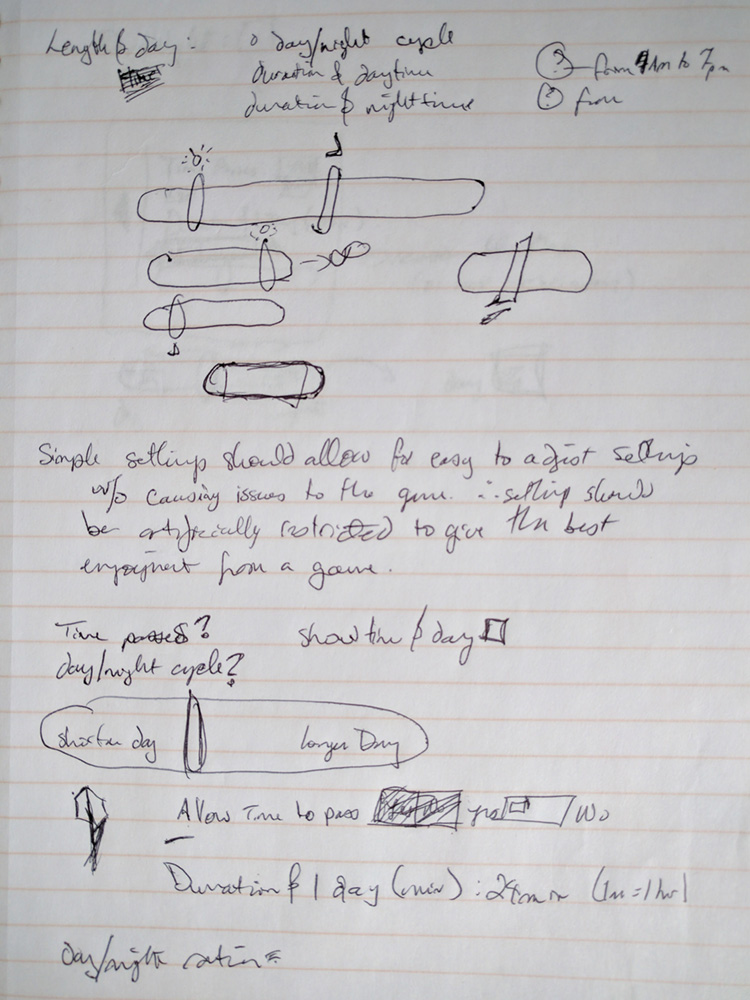 Length of day : o day/night cycle
duration of daytime
duration of nighttime
? from 9am to 7pm
? from
Simple settings should allow for easy to adjust settings
w/o causing issues to the game. ∴ setting should
be artificially restricted to give the best
enjoyment from a game.
Time passes? show time of day
day/night cycle?
shorter day longer Day
Allow Time to pass yes / No
Duration of 1 day (min) : 24min (1m=1hr)
day/night ratio